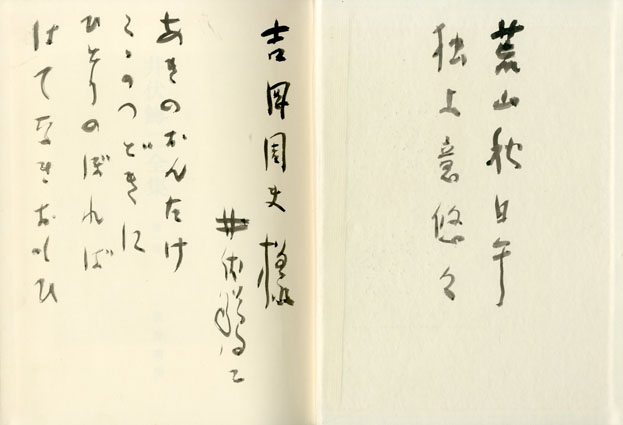 荒山秋日午
独上意悠々
吉岡周史様
井伏鱒二
あきのおんたけ
こゝのつどきに
ひとりのぼれば
はてなきおもひ